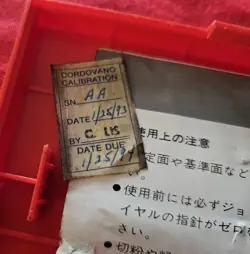 CORDOVANO
CALIBRATION
SN AA
DATE 1/25/93
BY C. LIS
DATE DUE
1/25/94
使用上の注意
定面や基準面など
●使用前には必ずジョ
イヤルの指針がゼロを
さい。
●切粉や